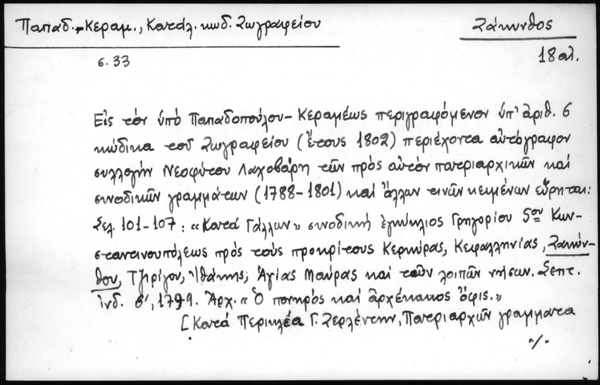 Παπαδ.-Κεραμ., Κατάλ. κωδ. Ζωγραφείου Ζάκυνθος
σ. 33 18 αἰ.
Εἰς τὸν ὑπὸ Παπαδοπούλου-Κεραμέως περιγραφόμενον ὑπ' ἀριθ. 6
κώδικα τοῦ Ζωγραφείου (ἔτους 1802) περιέχοντα αὐτόγραφον
συλλογὴν Νεοφύτου Λαχοβάρη τῶν πρὸς αὐτὸν πατριαρχικῶν καὶ
συνοδικῶν γραμμάτων (1788-1801) καὶ ἄλλων τινῶν κειμένων εὕρηται:
Σελ. 101-107: «Κατὰ Γάλλων» συνοδικὴ ἐγκύκλιος Γρηγορίου 5ου Κων-
σταντινουπόλεως πρὸς τοὺς προκρίτους Κερκύρας, Κεφαλληνίας, Ζακύν-
θου, Τζηρίγου, Ἰθάκης, Ἁγίας Μαύρας καὶ τῶν λοιπῶν νήσων. Σεπτ.
ἰνδ. 1799. Ἀρχ. «Ὁ πονηρὸς καὶ ἀρχέκακος ὄφις.»
[Κατὰ Περικλέα Γ. Ζερλέντην, Πατριαρχῶν γράμματα
·/.